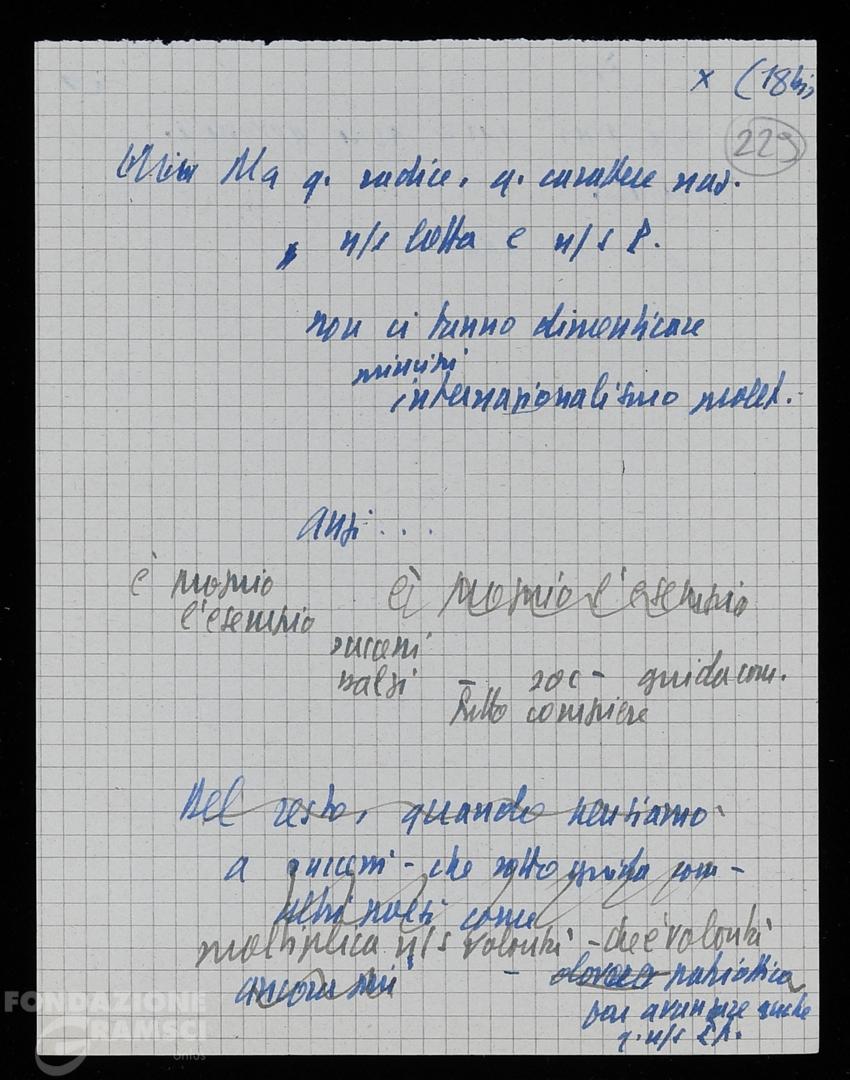 x (18bis
229
Ma q. radice, q. carattere naz.
n/s lotta e n/s P.
non ci fanno dimenticare
principi
internazionalismo prolet.
anzi...
è proprio
l'esempio
è proprio l'esempio
successi
paesi – soc – guida com.
fatto compiere
Del resto, quando pensiamo
a successi – che sotto guida com –
altri paesi come
moltiplica n/s volontà – che è volontà
ancora più – patriottica
far avanzare anche
q. n/s
FONDAZIONE
GRAMSCI
onlus